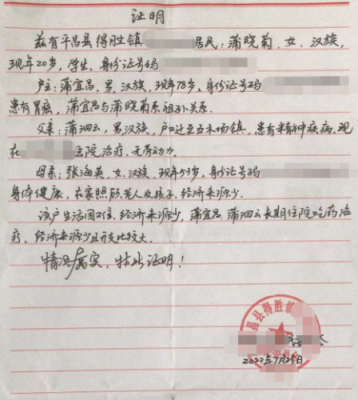 证明
兹有平昌县得胜镇 居民：蒲晓菊，女，汉族，
现年20岁，学生，身份证号码
户主：蒲宜昌，男，汉族，现年78岁，身份证号码
患有胃癌，蒲宜昌与蒲晓菊系祖孙关系。
父亲：蒲泗云，男汉族，户口迁至云木场镇，患有精神疾病，现
在 医院治疗，无劳动力。
母亲：张海英，女，汉族，年 岁，身份证号码
身体健康，在家照顾老人及孩子，经济来源少。
该户生活困难，经济来源少，蒲宜昌 蒲泗云长期住院吃药治
疗，经济来源少且开支比较大。
情况属实，特此证明！
昌县得胜镇
2022年7月29日